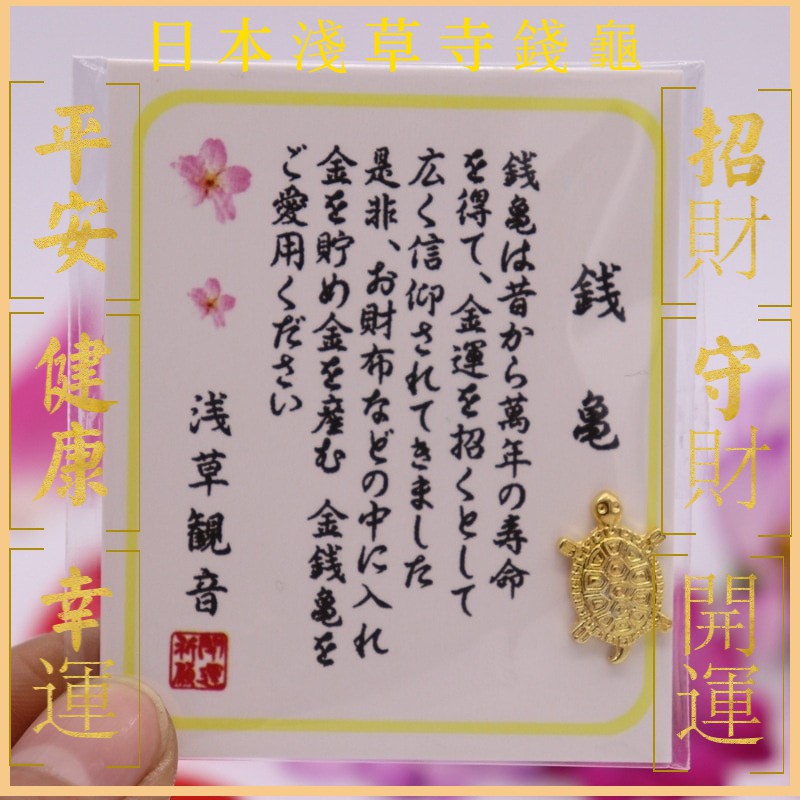 日本淺草寺錢龜
招財
守財
開運
平安
健康
幸運
銭亀
銭亀は昔から萬年の寿命
を得て、金運を招くとして
広く信仰されてきました
是非、お財布などの中に入れ
金を貯め金を産む 金銭亀を
ご愛用ください
浅草観音
開運
祈願